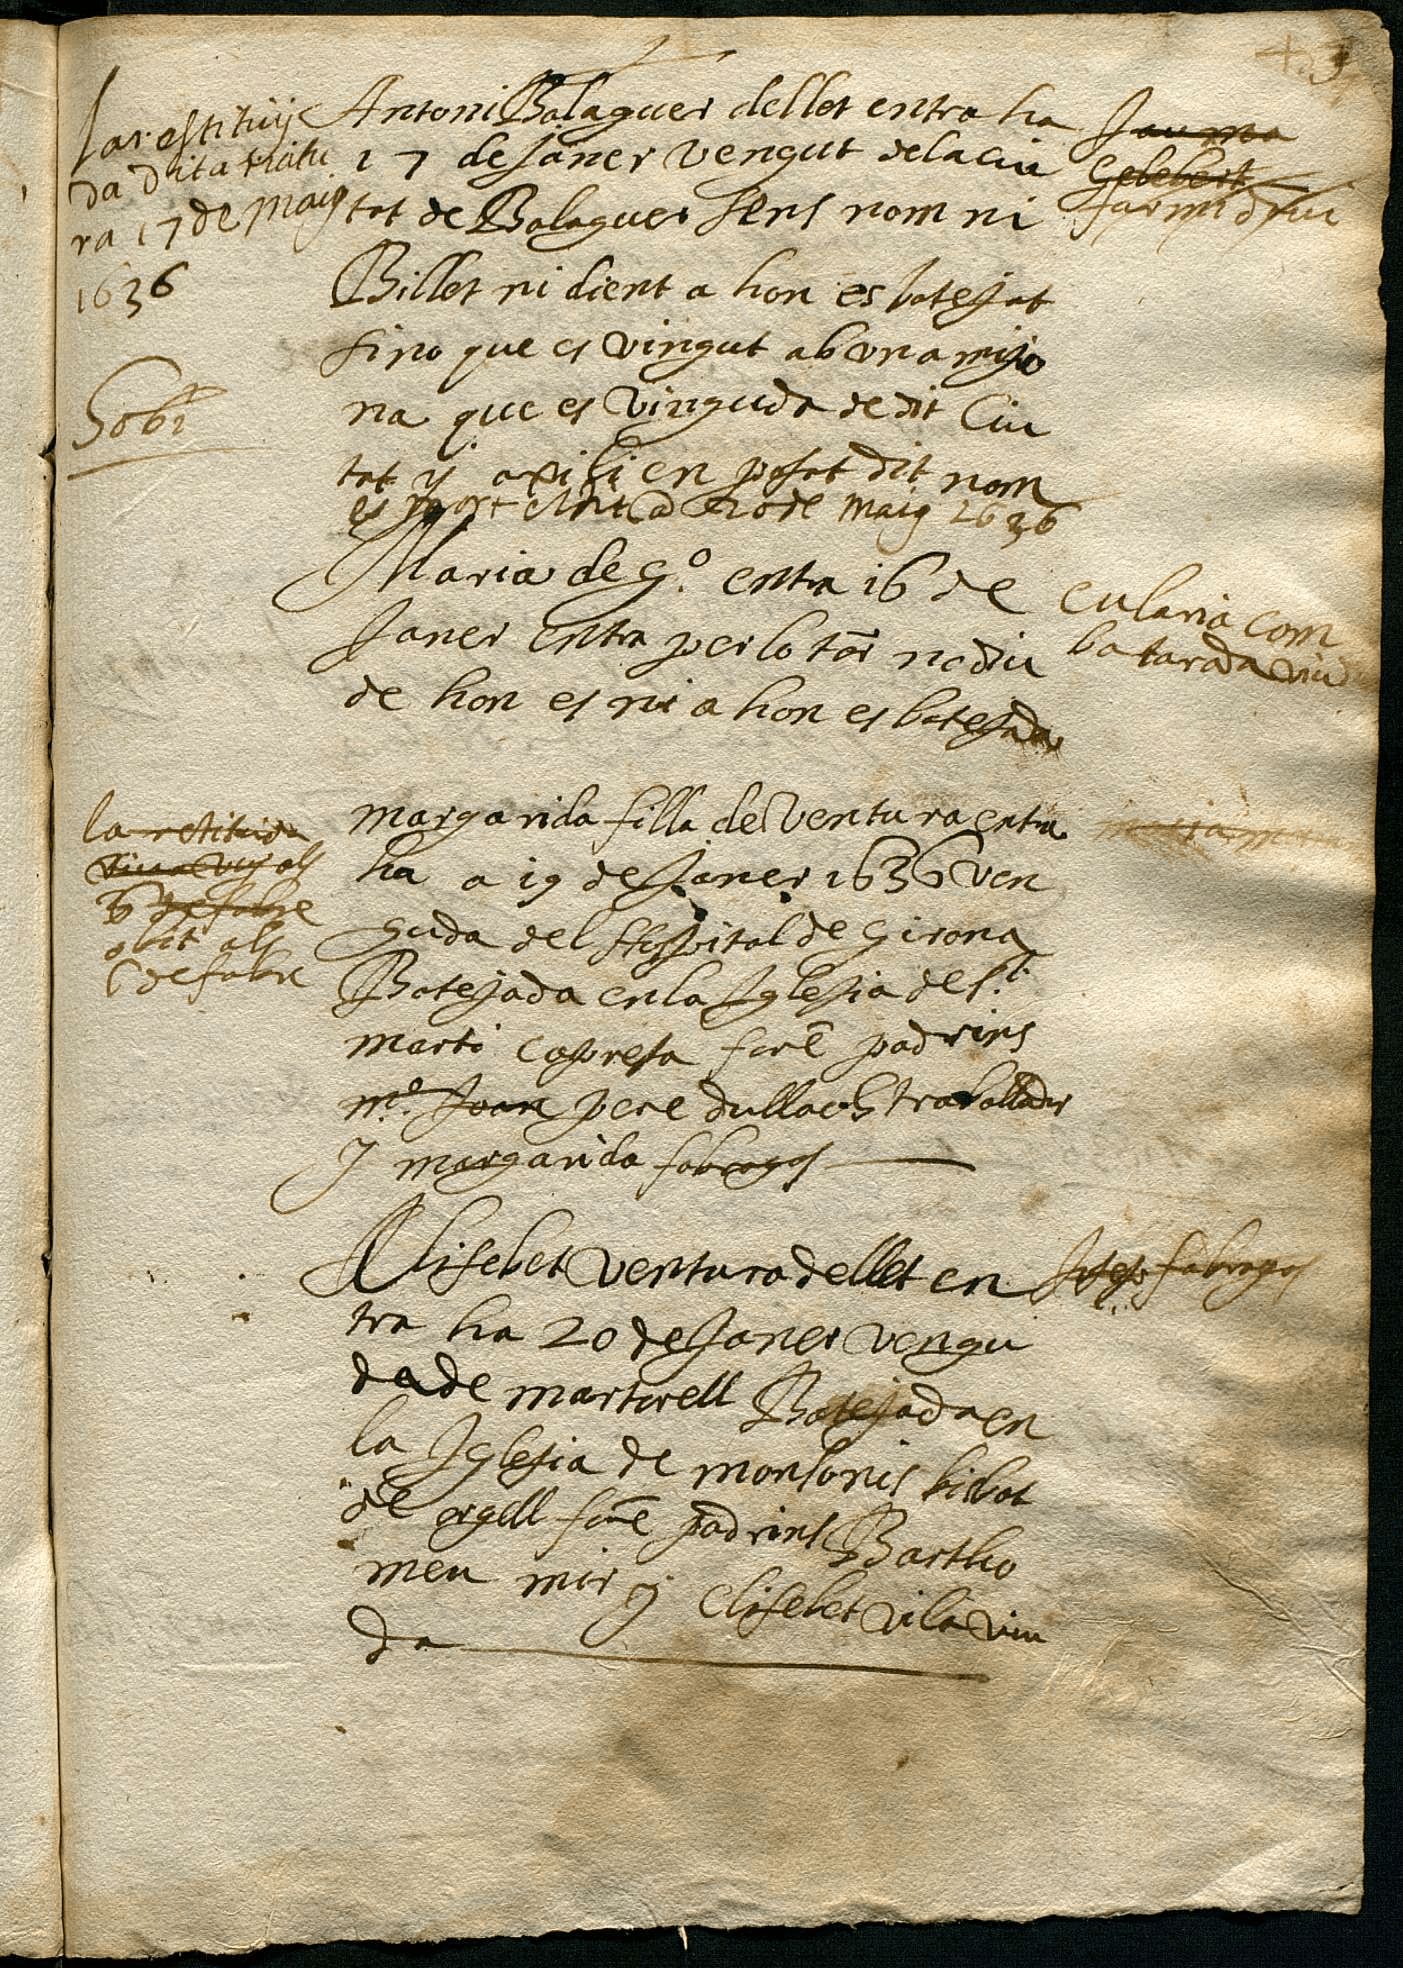 la restituy
da dita tratu
ra 17 de maig
1636
Antoni Balaguer dellet entra ha
17 de Janer vengut dela ciu
tat de Balaguer sens nom ni
Billet ni dient a hon es batejat
sino que es vingut ab vna mijo
na que es vinguda de dit Ciu
tat y axi li en posat dit nom
es mort a 20 de maig 1636
Jauma
Gelebert
Maria de G.º entra 16 de
Janer entra per lo tor no diu
de hon es ni a hon es batejada
eularia com
batarada viu
la restituida
als
6 de fabre
obit als
6 de fabre
margarida filla de Ventura entra
ha a 19 de Janer 1636 ven
guda del Hospital de Girona
Batejada en la Iglesia de S.t
marti Caspresa forē padrins
m.º Joan pere dullach traballador
y margarida fabregas
maria
Elisebet Ventura dellet en
tra ha 20 de Janer vengu
da de martorell Batejada en
la Iglesia de monsonis bisbat
de vrgell forē padrins Bartho
meu mir y elisebet vila viu
da
Josep fabregas